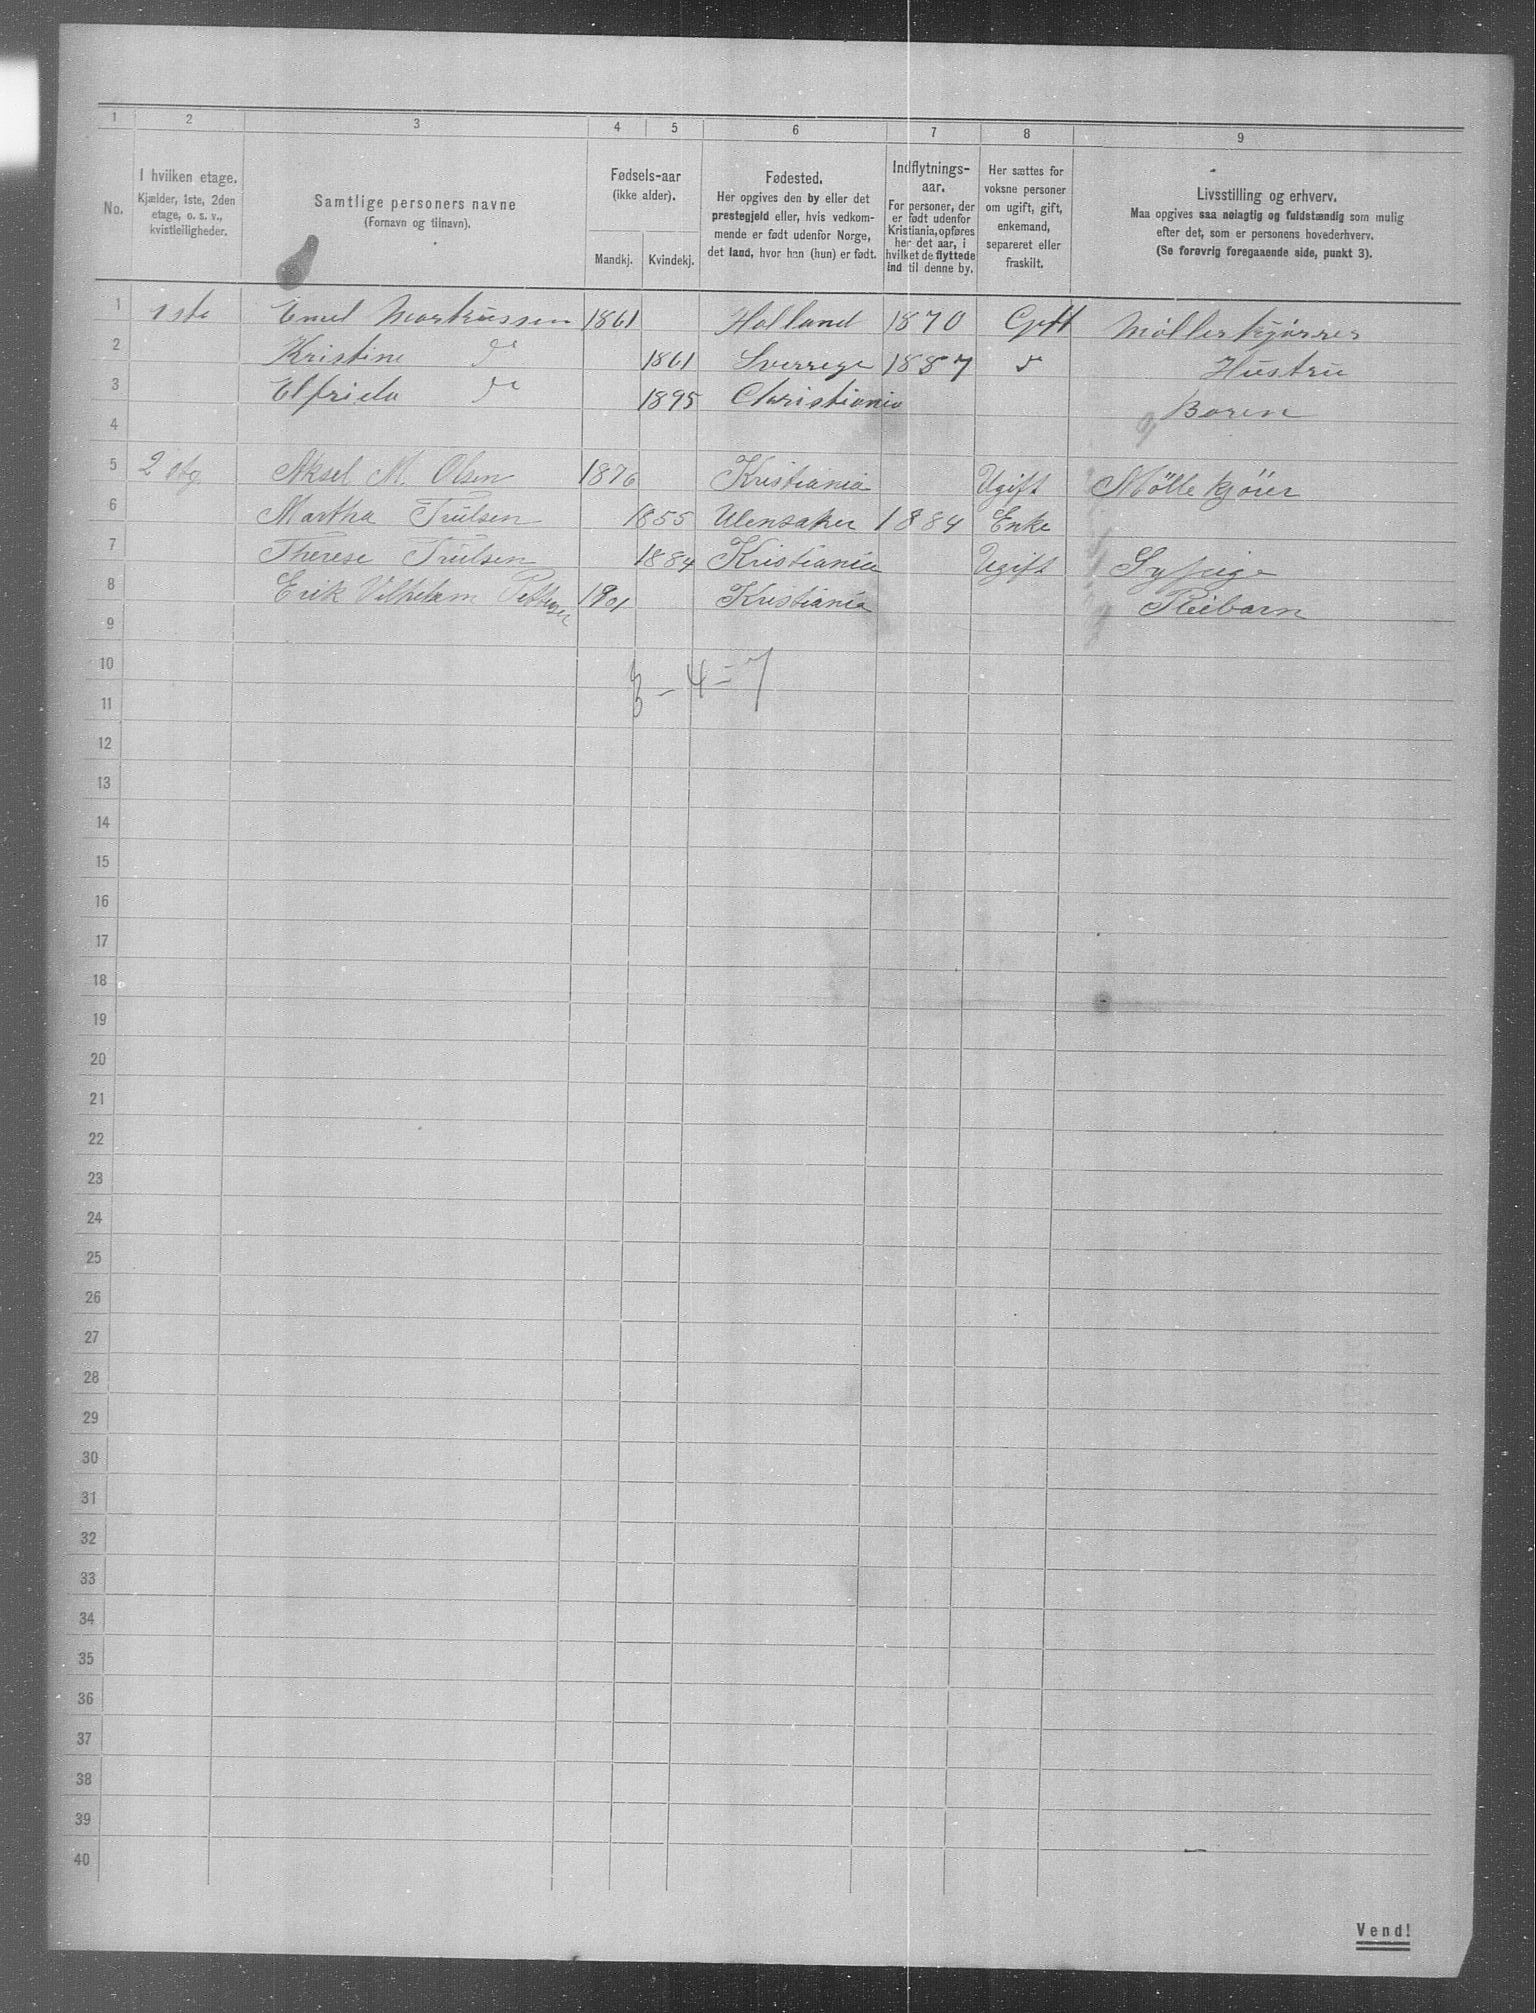 1 2 3 4 5 6 7 8 9
No.
I hvilken etage.
Kjælder, 1ste, 2den
etage, o. s. v.,
kvistleiligheder.
Samtlige personers navne
(Fornavn og tilnavn).
Fødsels-aar
(ikke alder).
Mandkj. Kvindekj.
Fødested.
Her opgives den by eller det
prestegjeld eller, hvis vedkom-
mende er født udenfor Norge,
det land, hvor han (hun) er født.
Indflytnings-
aar.
For personer, der
er født udenfor
Kristiania, opføres
her det aar, i
hvilket de flyttede
ind til denne by.
Her sættes for
voksne personer
om ugift, gift,
enkemand,
separeret eller
fraskilt.
Livsstilling og erhverv.
Maa opgives saa nøiagtig og fuldstændig som mulig
efter det, som er personens hovederhverv.
(Se forøvrig foregaaende side, punkt 3).
1 1ste Emil Markussen 1861 Holland 1870 Gift Møllerkjører
2 Kristine Do 1861 Sverrege 1887 Hustru
3 Elfrida Do 1895 Christiania Baren
4
5 2 etg. Aksel M. Olsen 1876 Kristiania Ugift Møllekjörer
6 Martha Trulsen 1855 Ulensaker 1884 Enke
7 Therese Trulsen 1884 Kristiania Ugift Sypige
8 Erik Vilhelm Pettersen 1901 Kristiania Pleiebarn
9
10
3 - 4 = 7
11
12
13
14
15
16
17
18
19
20
21
22
23
24
25
26
27
28
29
30
31
32
33
34
35
36
37
38
39
40
Vend!